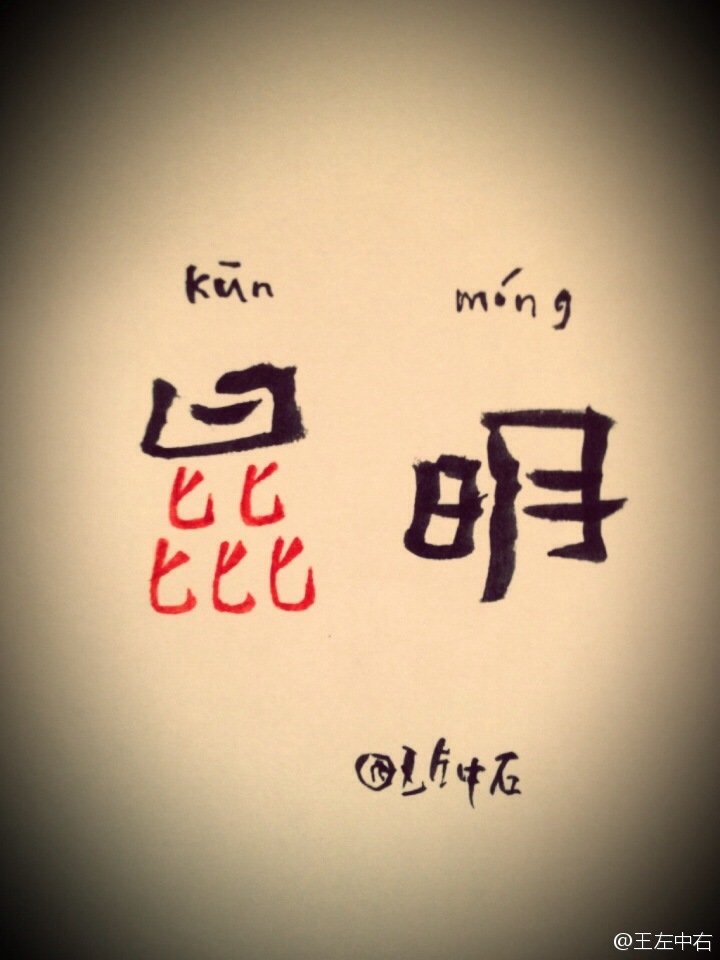 kūn míng
昆明
@王左中右
@王左中右